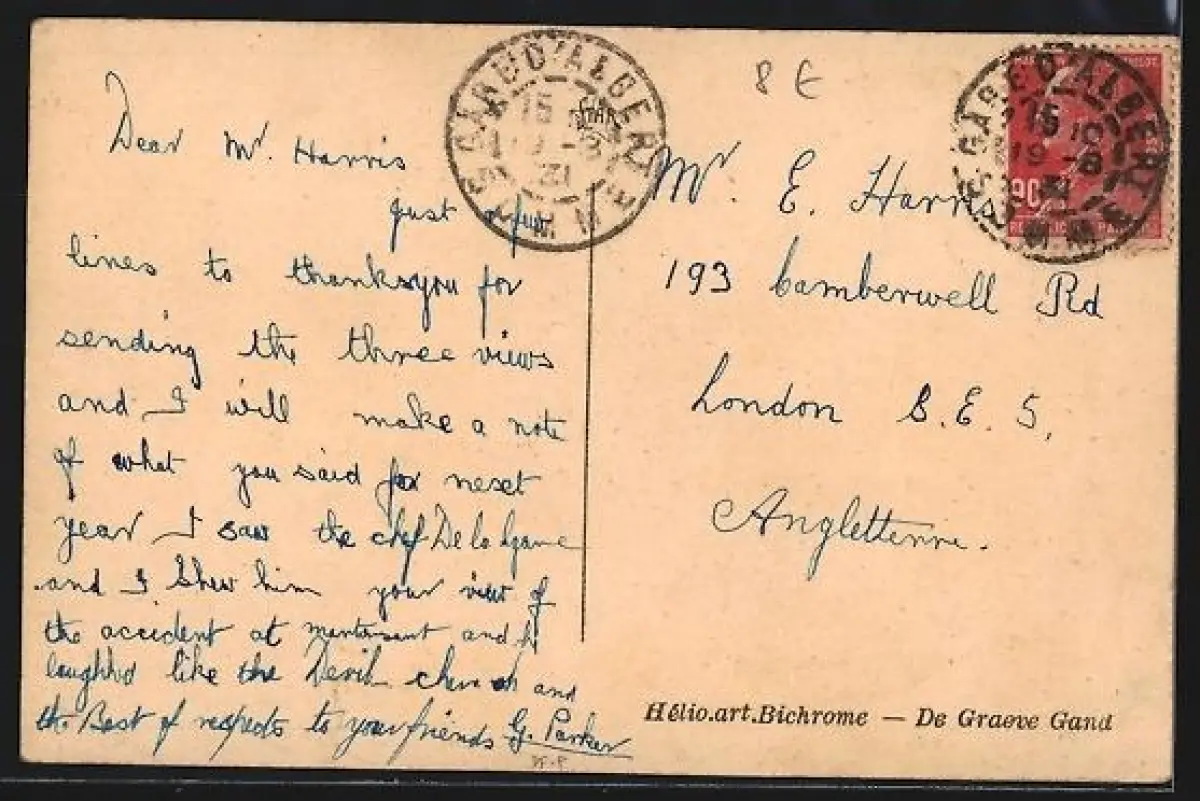 Dear Mr. Harris
just a few
lines to thanksyou for
sending the three views
and I will make a note
of what you said for nesct
year I saw the chef De la Game
and I Shew him your view of
the accident at and he
laughed like the Devil and
the Best of respects to your friends G. Parker
8 E
Mr. E. Harris
193 Camberwell Rd
London S.E. 5.
Angletterre.
GARE D'ALBERT
15
19 -8
31
SOMME
GARE D'ALBERT
15 10
19 -8
31
SOMME
90
Hélio.art.Bichrome — De Graeve Gand